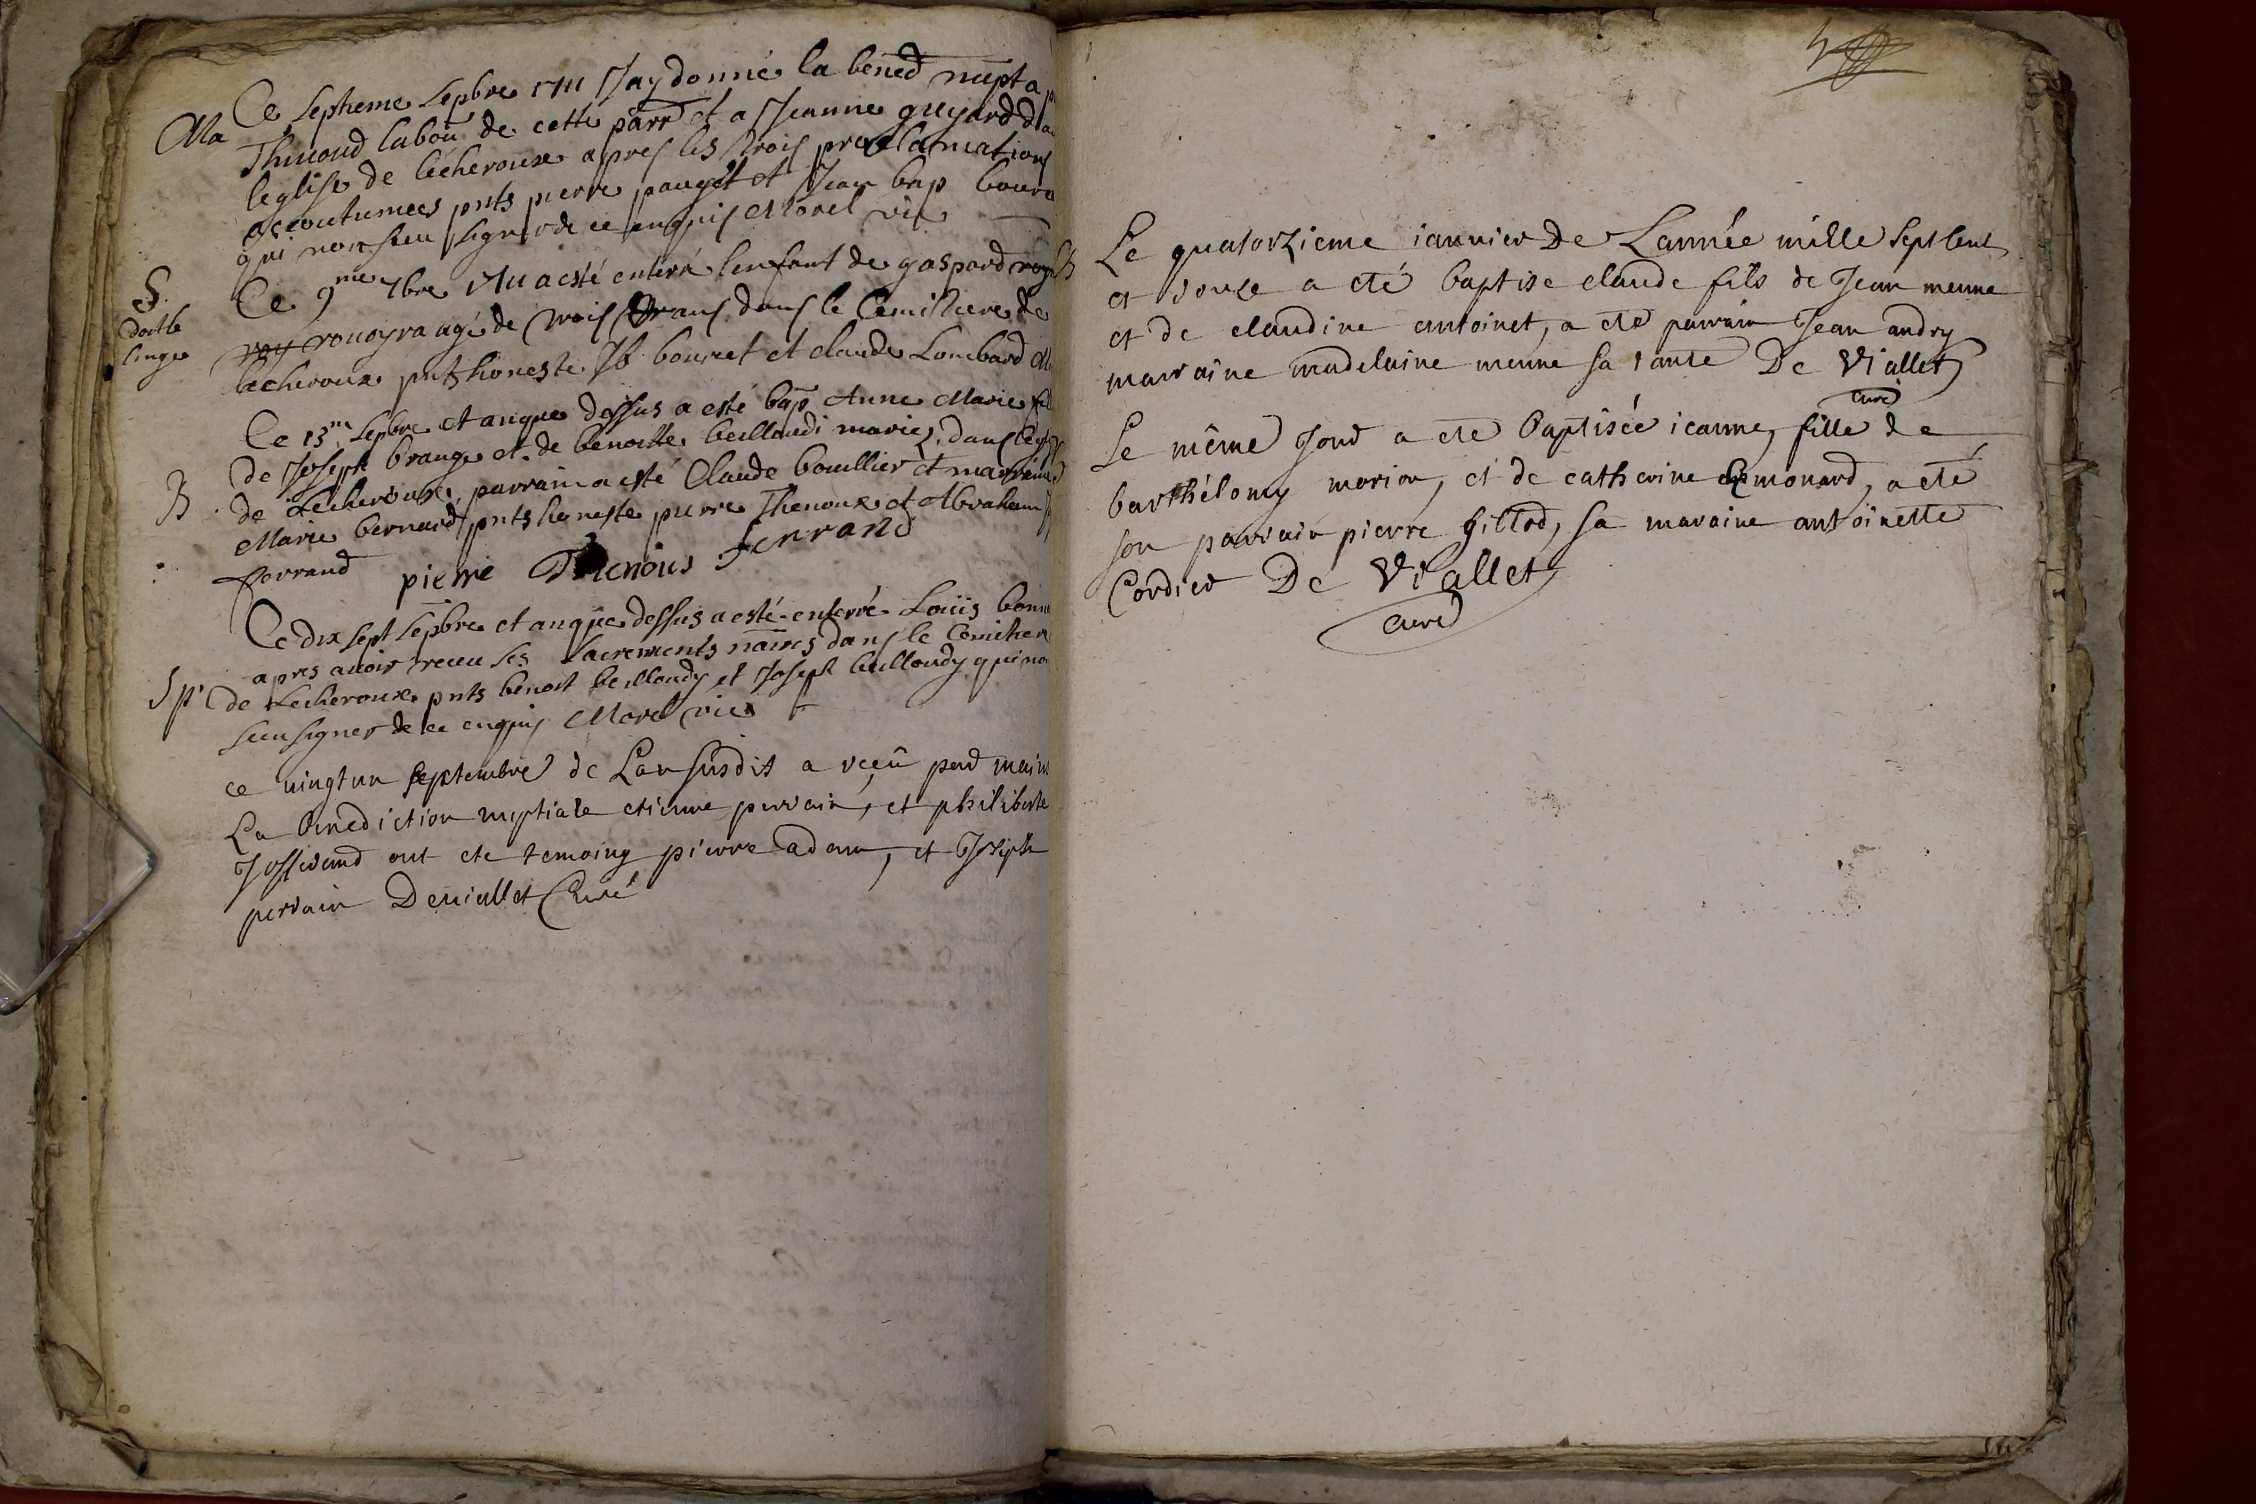 Ma
Ce septieme sepbre 1711 Jay donné la bened nupt a
Thinoud labou de cette parr et a Jeanne guyard d
leglise de lécheroux apres les trois proclamations
accoutumées pnts pierre pauget et Jean bap
qui nont sceu signer de ce enquis Morel vic
S.
doit le
linge
Ce 9me 7bre 1711 a esté enterré lenfant de gaspard
rouoyra agé de trois ans dans le Cemitiere de
lécheroux pnts honeste Jb bouvet et claude Lombard
B
Ce 13me sepbre et an que dessus a esté bap Anne Marie
de Joseph brange et de benoitte beillandi mariez dans
de Lecheroux, parrain a esté Claude bouillier et marraine
Marie bernard pnts honeste pierre Thenoux et Abraham
ferrand pierre Thenous ferrand
Sp.
Ce dix sept sepbre et an que dessus a esté enterré Loüis
apres avoir receu ses sacrements naires dans le
de Lecheroux pnts benoit beilloudy et Joseph beilloudy qui
sceu signer de ce enquis Morel vic
ce vingt un septembre de Lan susdit a receû
La benediction nuptiale etienne perrain, et philiberte
Josserand ont ete temoing pierre adam, et Joseph
perrain Deviallet Curé
B
Le quatorzieme ianvier De Lannée mille sept cent
et douze a eté baptise claude fils de Jean menne
et de claudine antoinet, a eté parrain Jean andry
marraine madelaine menne sa tante De Viallet
curé
Le même Jour a ete baptisée ieanne, fille de
barthélomy morion, et de catherine emonard, a eté
son parrain pierre gillod, sa maraine antoinette
Cordier De Viallet
curé